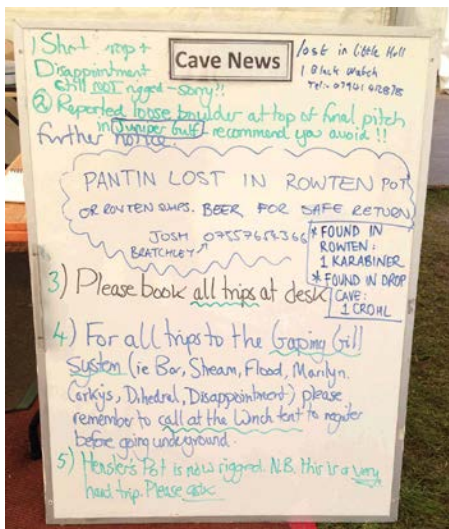 Cave News
1 Short Drop +
Disappointment
still NOT rigged - sorry!!
lost in little Hull
1 Black Watch
Tel:-
② Reported loose boulder at top of final pitch
in Juniper Gulf. recommend you avoid!!
further notice.
PANTIN LOST IN ROWTEN POT
OR ROWTEN SUMPS. BEER FOR SAFE RETURN
JOSH 07557654366
BRATCHLEY
* FOUND IN
ROWTEN:
1 KARABINER
* FOUND IN DROP
CAVE:
1 CROHL
3) Please book all trips at desk
4) For all trips to the Gaping Gill
System (ie Bar, Stream, Flood, Marilyn.
Corkys, Dihedral, Disappointment) please
remember to call at the Winch tent to register
before going underground.
5) Hensler's Pot is now rigged. N.B. this is a very
hard trip. Please ask.